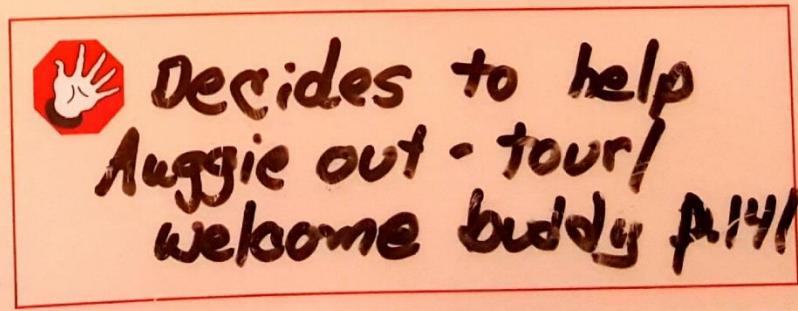 Decides to help
Auggie out - tour/
welcome buddy p.141